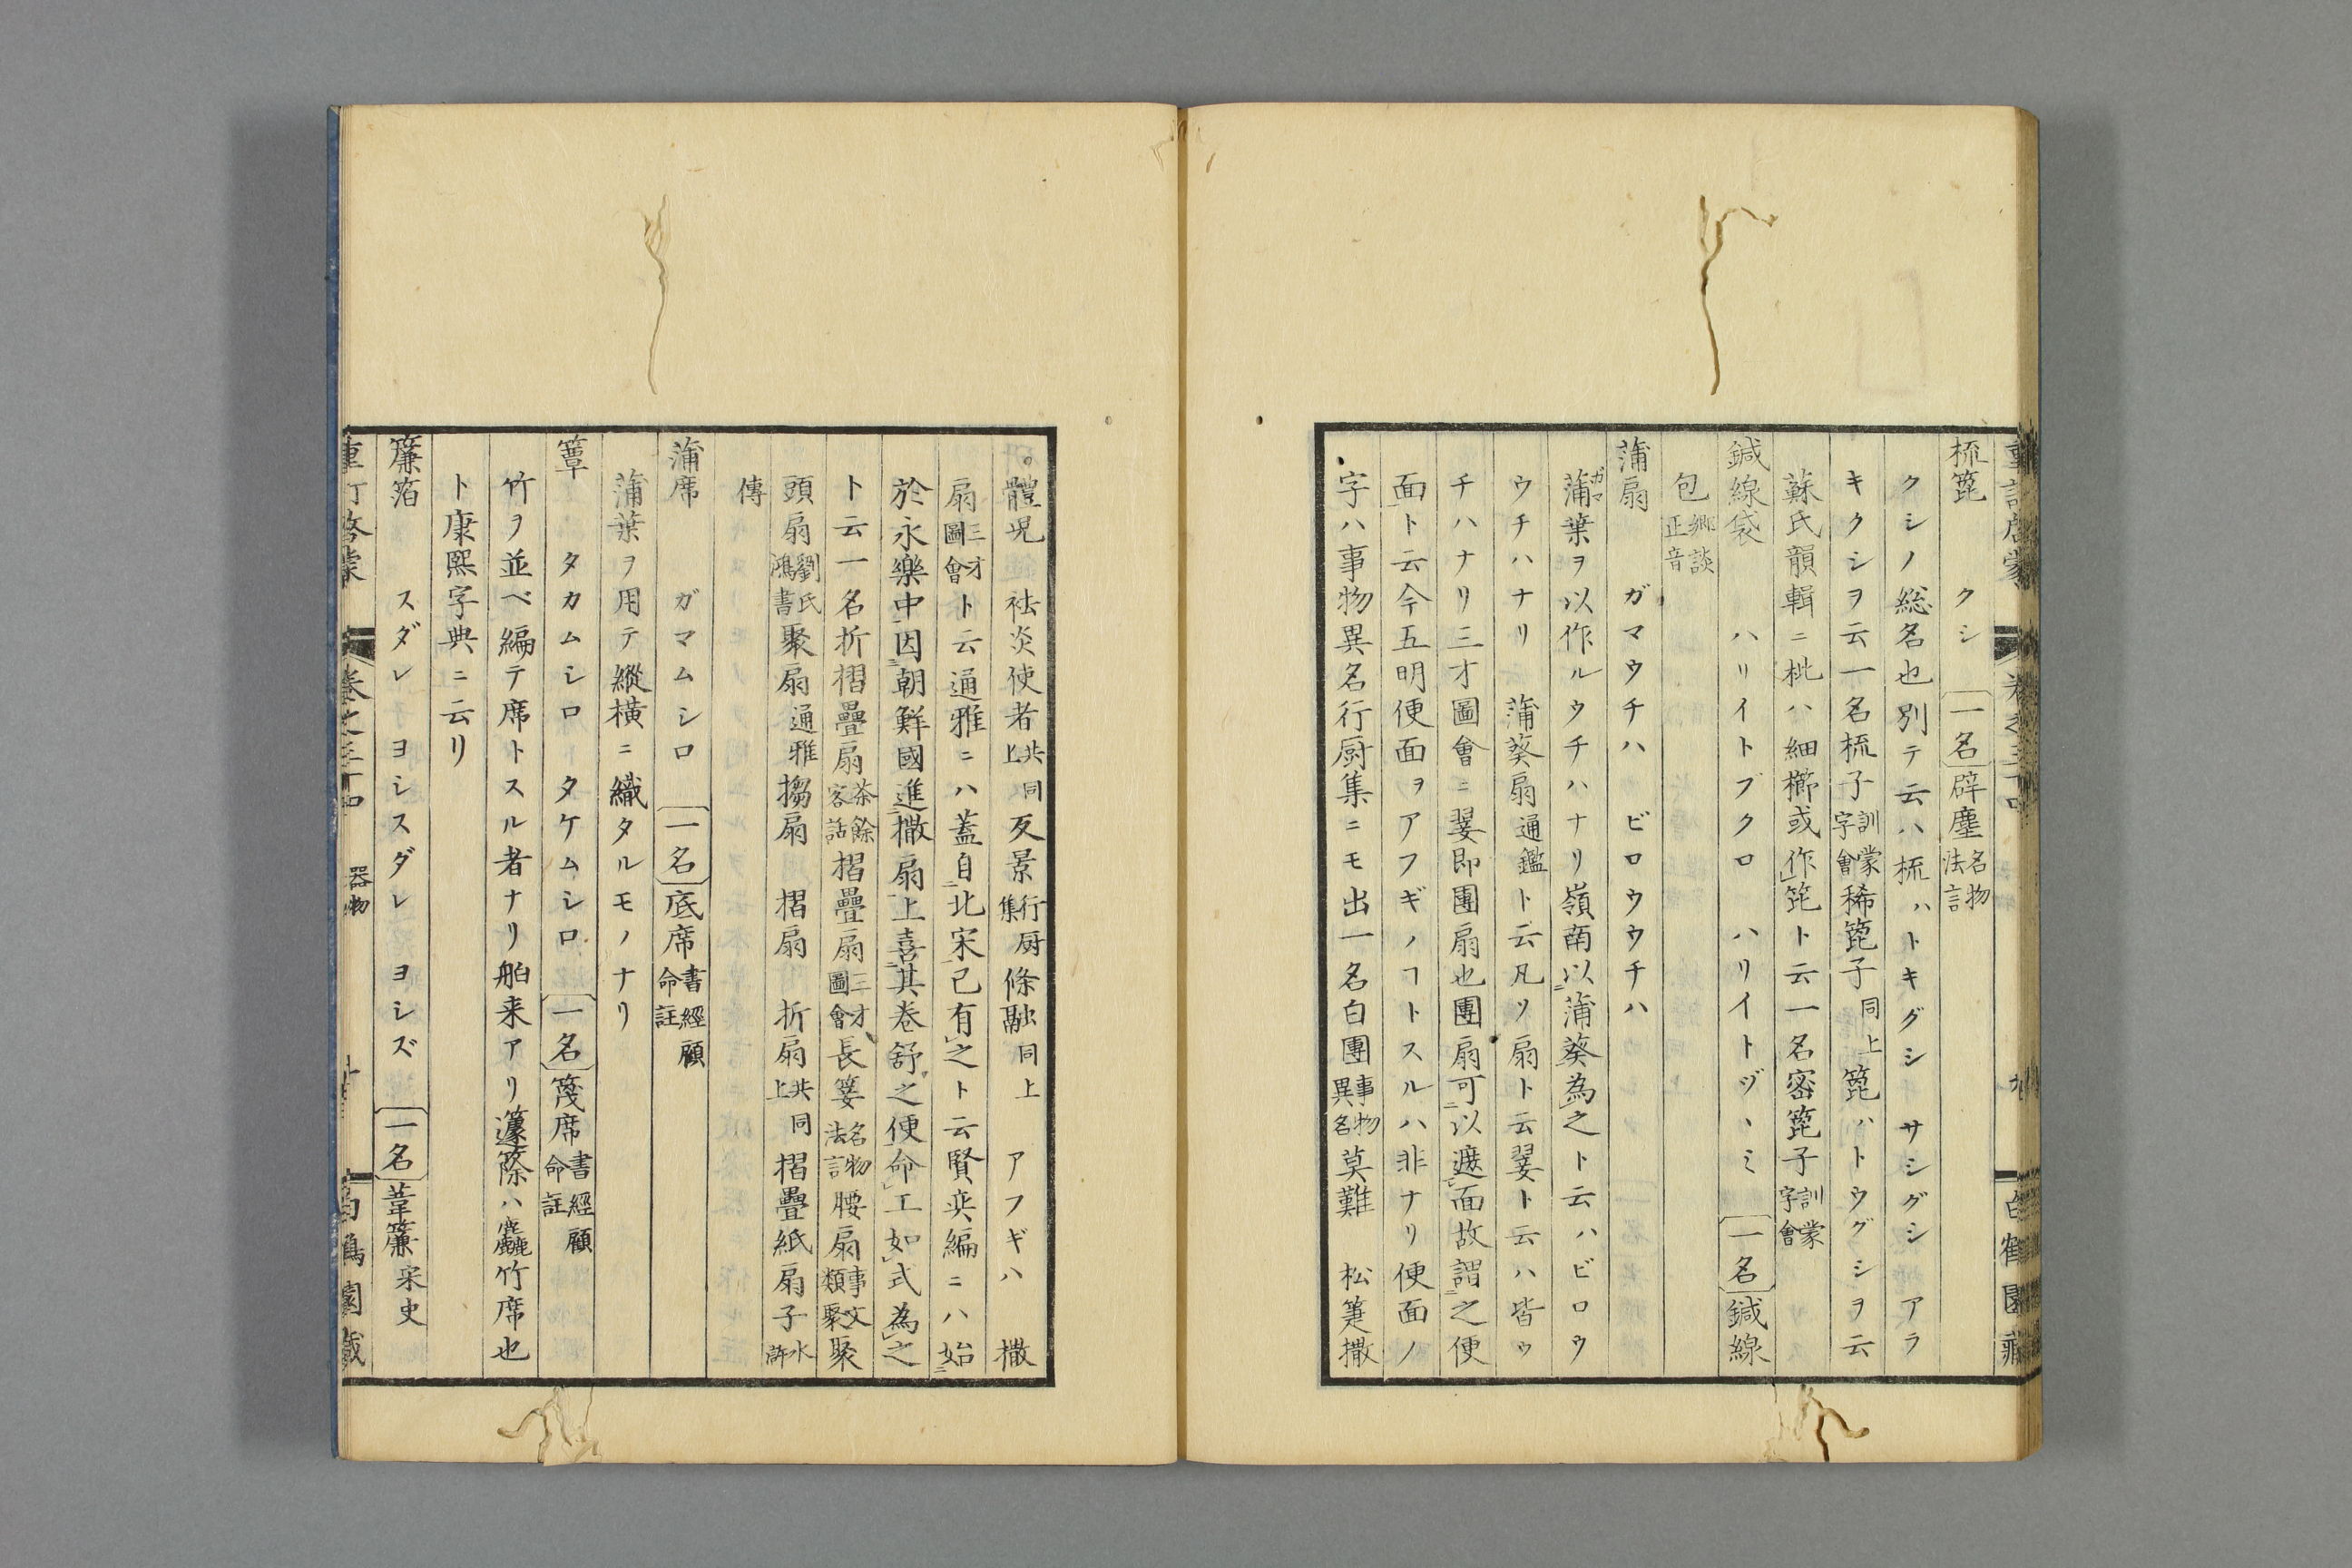 重訂啓蒙 卷之三十四 九 白鶴園藏
梳篦 クシ 一名 辟塵 名物法言
クシノ総名也別テ云ハ梳ハトキグシ サシグシ アラ
キクシヲ云一名梳子 訓蒙字會 稀篦子 同上 篦ハトウグシヲ云
蘇氏韻輯ニ枇ハ細櫛或作笓ト云一名密篦子 訓蒙字會
鍼線袋 ハリイトブクロ ハリイトヅヽミ 一名 鍼線
包 郷談正音
蒲扇 ガマウチハ ビロウウチハ
蒲葉ヲ以作ルウチハナリ嶺南以蒲葵為之ト云ハビロウ
ガマ
ウチハナリ 蒲葵扇 通鑑 ト云凡ソ扇ト云翣ト云ハ皆ウ
チハナリ三才圖會ニ翣即團扇也團扇可以遮面故謂之便
面ト云今五明便面ヲアフギノヿトスルハ非ナリ便面ノ
字ハ事物異名行厨集ニモ出一名白團 事物異名 莫難 松箑 撒
體児 祛炎使者 共同上 仄景 行厨集 條融 同上 アフギハ 撒
扇 三才圖會 ト云通雅ニハ蓋自北宋已有之ト云賢奕編ニハ始
於永樂中因朝鮮國進撒扇上喜其卷舒之便命工如式為之
ト云一名折摺疊扇 茶餘客話 摺疊扇 三才圖會 長箑 名物法言 腰扇 事文類聚 聚
頭扇 劉氏鴻書 聚扇 通雅 搊扇 摺扇 折扇 共同上 摺疊紙扇子 水滸
傳
蒲席 ガマムシロ 一名 底席 書經顧命註
蒲葉ヲ用テ縱橫ニ織タルモノナリ
簟 タカムシロ タケムシロ 一名 篾席 書經顧命註
竹ヲ並ベ編テ席トスル者ナリ舶来アリ籧篨ハ麤竹席也
ト康熙字典ニ云リ
簾箔 スダレ ヨシスダレ ヨシズ 一名 葦簾 宋史
重訂啓蒙 卷之三十四 器物 白鶴園藏